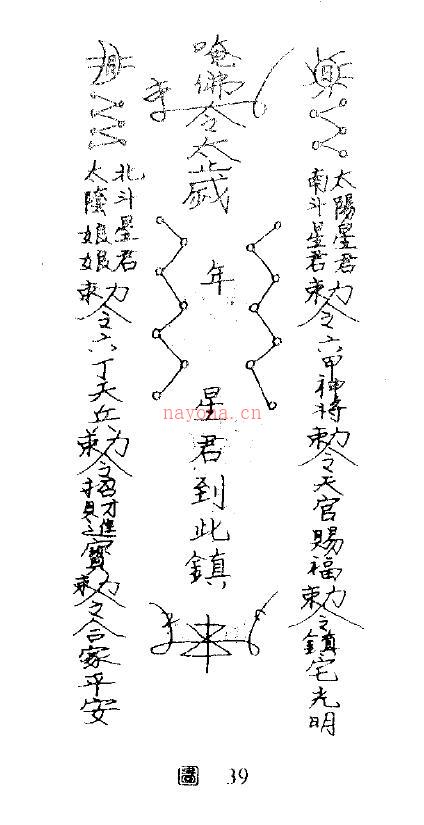 太陽星君
南斗星君
勅令六甲神將勅令天官賜福勅令鎮宅光明
唵佛令太歲
年
星君到此鎮
北斗星君
太陰娘娘
勅令六丁天兵勅令招財進寶勅令合家平安
nayona.cn
圖 39